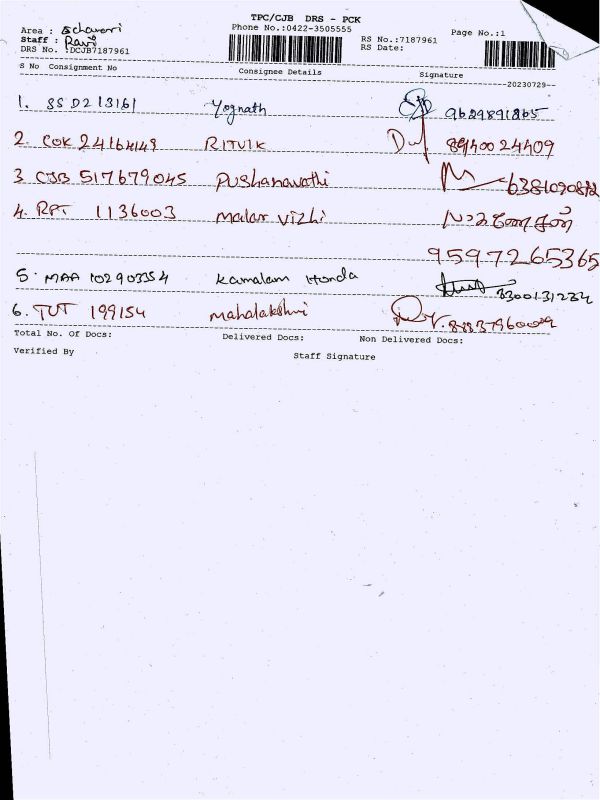 TPC/CJB DRS - PCK
Area :
Phone No.:0422-3505555
Page No.:1
Staff : Ravi
RS No.:7187961
DRS No. :DCJB7187961
RS Date:
S No Consignment No Consignee Details Signature
20230729
1. SSD213161 Yognath 9629891265
2. COK 24164149 RITVIK 8940024409
3 CJB 517679045 Pushanavathi
4. RPT 1136003 malar vizhi
9597265365
5. MAA 102903354 Kamalam Honda
6. TUT 199154 mahalakshmi
Total No. Of Docs: Delivered Docs: Non Delivered Docs:
Verified By Staff Signature